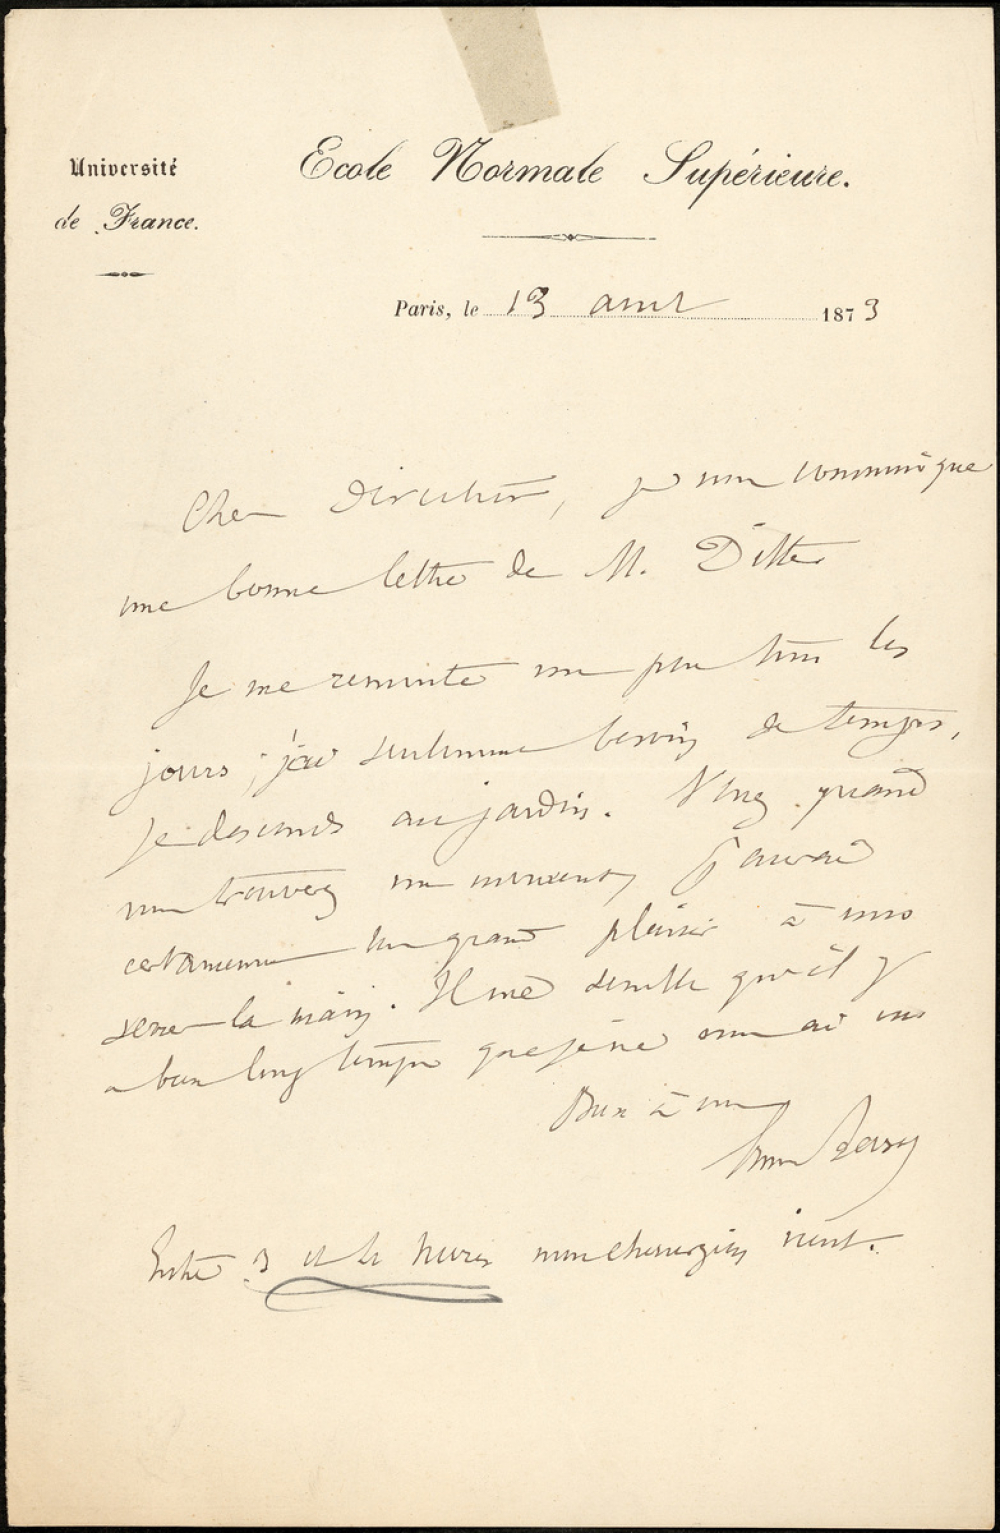 Université
de France.
Ecole Normale Supérieure.
Paris, le 13 avril 1873
Cher Directeur, je vous communique
une bonne lettre de M. Ditte
Je me remonte un peu tous les
jours ; j'ai seulement besoin de temps,
Je descends au jardin. Venez quand
vous trouverez un moment, j'aurai
certainement un grand plaisir à vous
serrer la main. Il me semble qu'il y
a bien longtemps que je ne vous ai vu
Bien à vous
Entre 3 et 4 heures mon chirurgien vient.